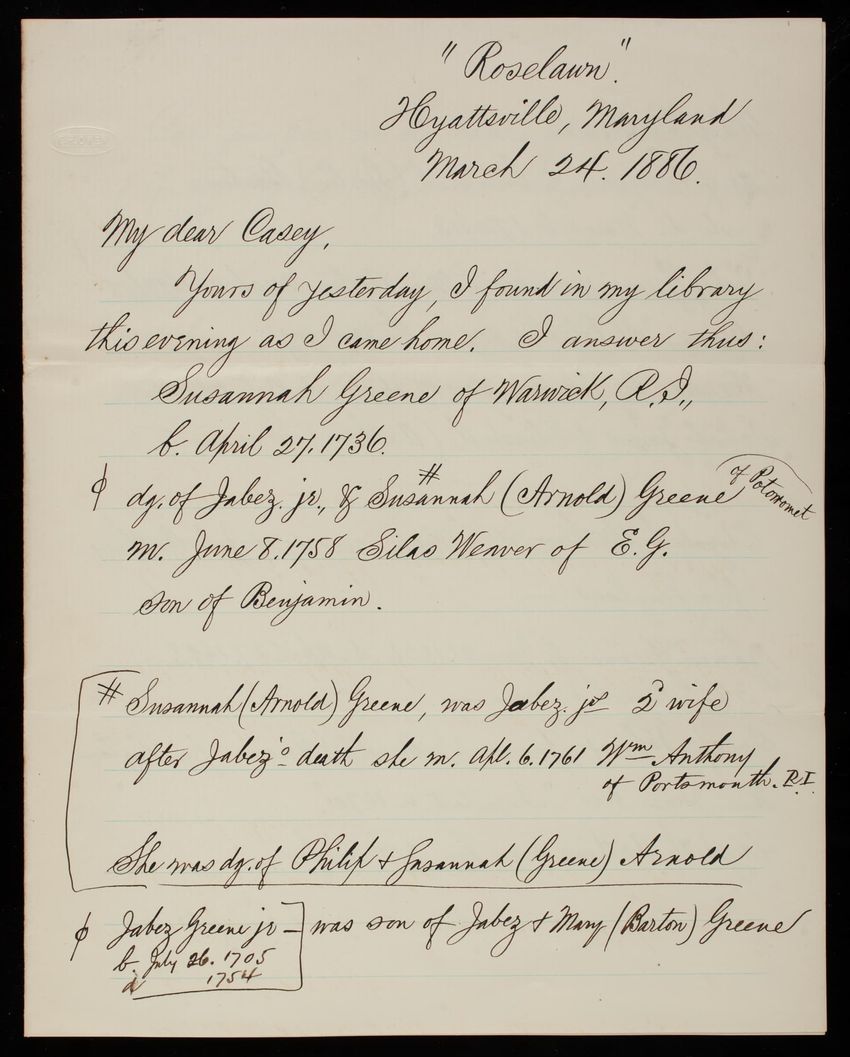 "Roselawn".
Hyattsville, Maryland
March 24. 1886.
My dear Casey,
Yours of yesterday, I found in my library
this evening as I came home. I answer thus:
Susannah Greene of Warwick, R.I.,
b. April 27. 1736.
ϕ dg. of Jabez jr., & Susannah # (Arnold) Greene of Potowomet
m. June 8. 1758 Silas Weaver of E. G.
son of Benjamin.
# Susannah (Arnold) Greene, was Jabez jrs 2d wife
after Jabez's death she m. Apl. 6. 1761 Wm Anthony
of Portsmouth. R.I.
She was dg. of Philip & Susannah (Greene) Arnold
ϕ Jabez Greene jr — was son of Jabez & Mary (Barton) Greene
b. July 26. 1705
d 1754